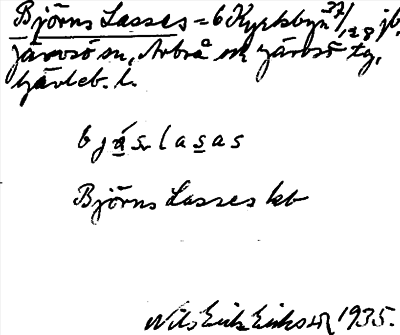 Björns Lasses = 6 Kyrkbyn 27/128 jb.
Järvsö sn, Arbrå och Järvsö tg,
Gävleb. l.
bjäs laisas
Björns Lasses kb
Nils Erik Eriksson 1935.